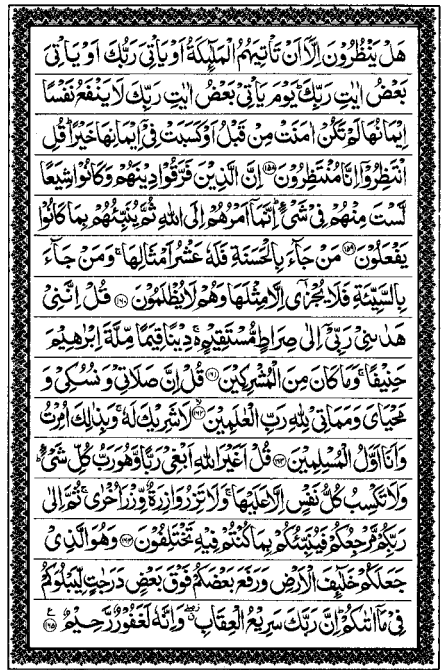 هَلۡ يَنۡظُرُوۡنَ اِلَّاۤ اَنۡ تَاۡتِيَهُمُ الۡمَلٰٓئِكَةُ اَوۡ يَاۡتِىَ رَبُّكَ اَوۡ يَاۡتِىَ
بَعۡضُ اٰيٰتِ رَبِّكَ ؕ يَوۡمَ يَاۡتِىۡ بَعۡضُ اٰيٰتِ رَبِّكَ لَا يَنۡفَعُ نَفۡسًا
اِيۡمَانُهَا لَمۡ تَكُنۡ اٰمَنَتۡ مِنۡ قَبۡلُ اَوۡ كَسَبَتۡ فِىۡۤ اِيۡمَانِهَا خَيۡرًا ؕ قُلِ
انْتَظِرُوۡۤا اِنَّا مُنۡتَظِرُوۡنَ ﴿۱۵۸﴾ اِنَّ الَّذِيۡنَ فَرَّقُوۡا دِيۡنَهُمۡ وَكَانُوۡا شِيَعًا
لَّسۡتَ مِنۡهُمۡ فِىۡ شَىۡءٍ ؕ اِنَّمَاۤ اَمۡرُهُمۡ اِلَى اللّٰهِ ثُمَّ يُنَبِّئُهُمۡ بِمَا كَانُوۡا
يَفۡعَلُوۡنَ ﴿۱۵۹﴾ مَنۡ جَآءَ بِالۡحَسَنَةِ فَلَهٗ عَشۡرُ اَمۡثَالِهَا ۚ وَمَنۡ جَآءَ
بِالسَّيِّئَةِ فَلَا يُجۡزٰٓى اِلَّا مِثۡلَهَا وَهُمۡ لَا يُظۡلَمُوۡنَ ﴿۱۶۰﴾ قُلۡ اِنَّنِىۡ
هَدٰٮنِىۡ رَبِّىۡۤ اِلٰى صِرَاطٍ مُّسۡتَقِيۡمٍ ۚ دِيۡنًا قِيَمًا مِّلَّةَ اِبۡرٰهِيۡمَ
حَنِيۡفًا ۚ وَمَا كَانَ مِنَ الۡمُشۡرِكِيۡنَ ﴿۱۶۱﴾ قُلۡ اِنَّ صَلَاتِىۡ وَنُسُكِىۡ وَ
مَحۡيَاىَ وَمَمَاتِىۡ لِلّٰهِ رَبِّ الۡعٰلَمِيۡنَ ۙ‏ ﴿۱۶۲﴾ لَا شَرِيۡكَ لَهٗ ۚ وَبِذٰلِكَ اُمِرۡتُ
وَاَنَا اَوَّلُ الۡمُسۡلِمِيۡنَ ﴿۱۶۳﴾ قُلۡ اَغَيۡرَ اللّٰهِ اَبۡغِىۡ رَبًّا وَّهُوَ رَبُّ كُلِّ شَىۡءٍ ؕ
وَلَا تَكۡسِبُ كُلُّ نَفۡسٍ اِلَّا عَلَيۡهَا ۚ وَلَا تَزِرُ وَازِرَةٌ وِّزۡرَ اُخۡرٰى ۚ ثُمَّ اِلٰى
رَبِّكُمۡ مَّرۡجِعُكُمۡ فَيُنَبِّئُكُمۡ بِمَا كُنۡتُمۡ فِيۡهِ تَخۡتَلِفُوۡنَ ﴿۱۶۴﴾ وَهُوَ الَّذِىۡ
جَعَلَكُمۡ خَلٰٓئِفَ الۡاَرۡضِ وَرَفَعَ بَعۡضَكُمۡ فَوۡقَ بَعۡضٍ دَرَجٰتٍ لِّيَبۡلُوَكُمۡ
فِىۡ مَاۤ اٰتٰٮكُمۡ ؕ اِنَّ رَبَّكَ سَرِيۡعُ الۡعِقَابِ ۖ وَاِنَّهٗ لَغَفُوۡرٌ رَّحِيۡمٌ ﴿۱۶۵﴾ ع